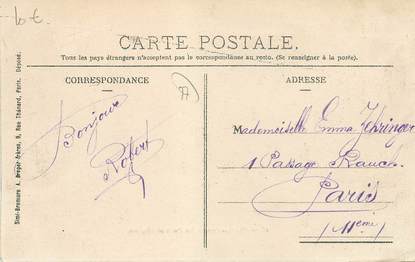 10 €
CARTE POSTALE.
Tous les pays étrangers n'acceptent pas la correspondance au recto. (Se renseigner à la poste).
CORRESPONDANCE
ADRESSE
Simi-Bromure A. Breger frères, 9, Rue Thénard, Paris. Déposé.
77
Bonjour
Robert
Mademoiselle Emma
1 Passage Rauch
Paris
(11eme)